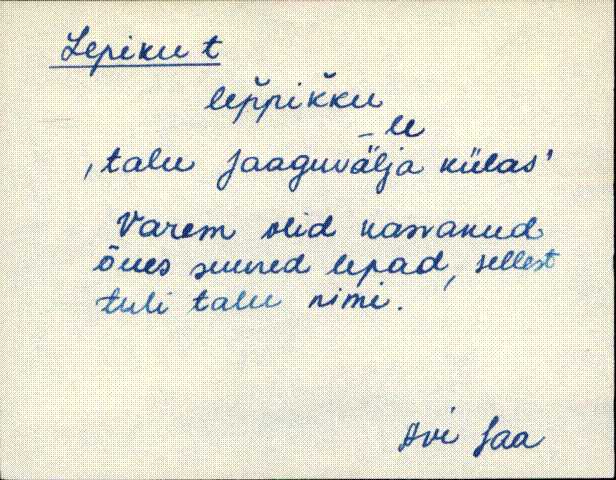 Lepiku t
lep̆pik̆ku
- le
‚talu Jaaguvälja külas’
Varem olid kasvanud
õues suured lepad, sellest
tuli talu nimi.
Avi Jaa